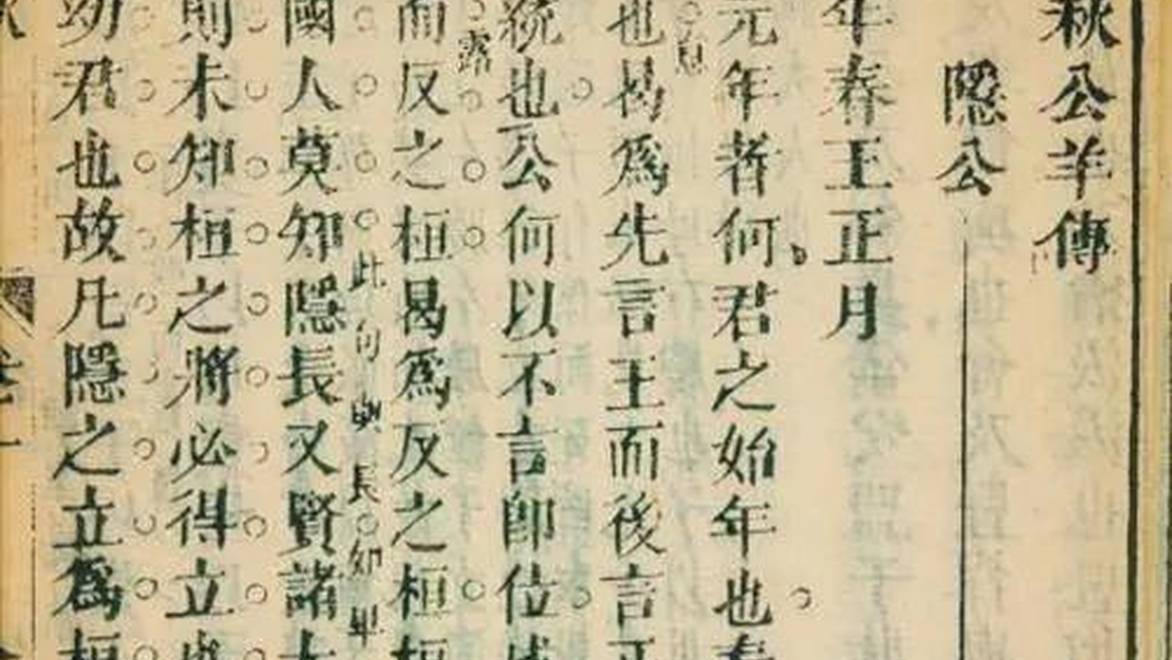 秋公羊傳
隱公
年春王正月
元年者何君之始年也春
也曷爲先言王而後言正
統也公何以不言卽位成
而反之桓曷爲反之桓桓
國人莫知隱長又賢諸大
則未知桓之將必得立也
幼君也故凡隱之立爲桓